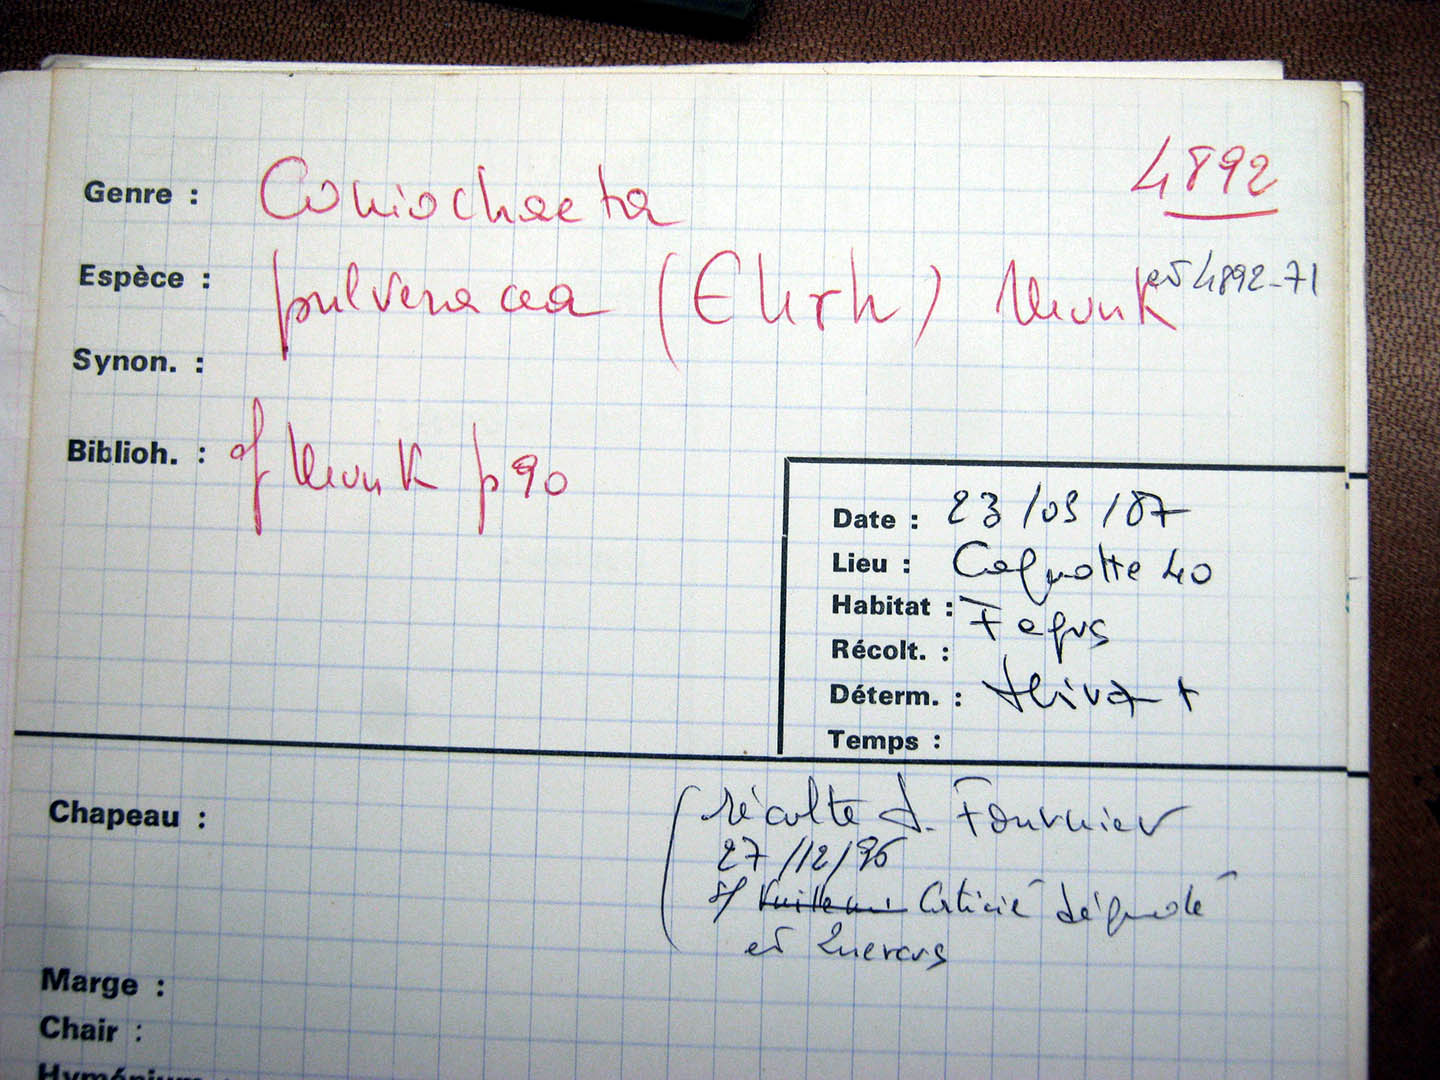 4892
Genre : Coniochaeta
Espèce : pulveracea (Ehrh) Munk
et 4892-71
Synon. :
Biblioh. : cf Munk p 90
Date : 23/03/87
Lieu : Cagnotte 40
Habitat : Fagus
Récolt. :
Déterm. :
Temps :
Chapeau :
récolte J. Fournier
27/12/96
s/ Corticié dégradé
et Quercus
Marge :
Chair :
Hyménium